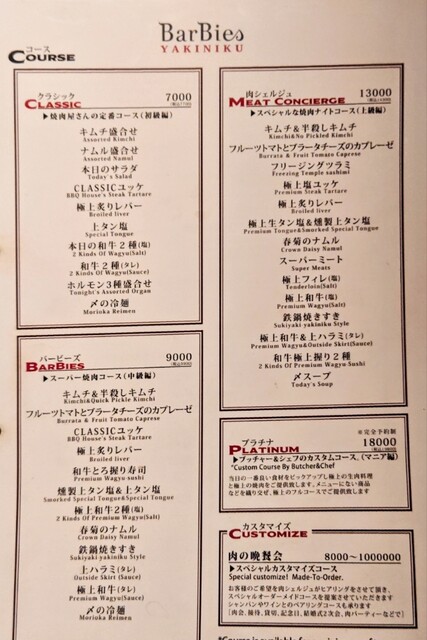 BarBies
YAKINIKU
コース
COURSE
クラシック
CLASSIC 7000
▶焼肉屋さんの定番コース(初級編)
キムチ盛合せ
Assorted Kimchi
ナムル盛合せ
Assorted Namul
本日のサラダ
Today's Salad
CLASSICユッケ
BBQ House's Steak Tartare
極上炙りレバー
Broiled liver
上タン塩
Special Tongue
本日の和牛2種(塩)
2 Kinds Of Wagyu(Salt)
和牛2種(タレ)
2 Kinds Of Wagyu(Sauce)
ホルモン3種盛合せ
Tonight's Assorted Organ
〆の冷麺
Morioka Reimen
バービーズ
BARBIES 9000
▶スーパー焼肉コース(中級編)
キムチ&半殺しキムチ
Kimchi&Quick Pickle Kimchi
フルーツトマトとブラータチーズのカプレーゼ
Burrata & Fruit Tomato Caprese
CLASSICユッケ
BBQ House's Steak Tartare
極上炙りレバー
Broiled liver
和牛とろ握り寿司
Premium Wagyu sushi
燻製上タン塩&上タン塩
Smorked Special Tongue&Special Tongue
極上和牛2種(塩)
2 Kinds Of Premium Wagyu(Salt)
春菊のナムル
Crown Daisy Namul
鉄鍋焼きすき
Sukiyaki yakiniku Style
上ハラミ(タレ)
Outside Skirt (Sauce)
極上和牛(タレ)
Premium Wagyu(Sauce)
〆の冷麺
Morioka Reimen
肉シェルジュ
MEAT CONCIERGE 13000
▶スペシャルな焼肉ナイトコース(上級編)
キムチ&半殺しキムチ
Kimchi&No Pickled Kimchi
フルーツトマトとブラータチーズのカプレーゼ
Burrata & Fruit Tomato Caprese
フリージングツラミ
Freezing Temple sashimi
極上塩ユッケ
Premium Steak Tartare
極上炙りレバー
Broiled liver
極上生タン塩&燻製上タン塩
Premium Tongue&Smorked Special Tongue
春菊のナムル
Crown Daisy Namul
スーパーミート
Super Meats
極上フィレ(塩)
Tenderloin(Salt)
極上和牛(塩)
Premium Wagyu(Salt)
鉄鍋焼きすき
Sukiyaki yakiniku Style
極上和牛&上ハラミ(タレ)
Premium Wagyu&Outside Skirt(Sauce)
和牛極上握り2種
2 Kinds Of Premium Wagyu Sushi
〆スープ
Today's Soup
※完全予約制
プラチナ
PLATINUM 18000
▶ブッチャー&シェフのカスタムコース、(マニア編)
"Custom Course By Butcher&Chef
当日の一番良い食材をピックアップし極上の生肉料理
と極上の焼肉をご提供致します、メニューにない商品
などを織り交ぜ、極上のフルコースでご提供致します
カスタマイズ
CUSTOMIZE
肉の晩餐会 8000〜1000000
▶スペシャルカスタマイズコース
Special customize! Made-To-Order.
お客様のご希望を肉シェルジュがヒアリングをさせて頂き、
スペシャルオーダーメイドコースを提案させていただきます
シャンパンやワインとのペアリングコースも承ります
[肉会、接待、貸切、記念日、結婚式2次会、肉パーティーなどで]